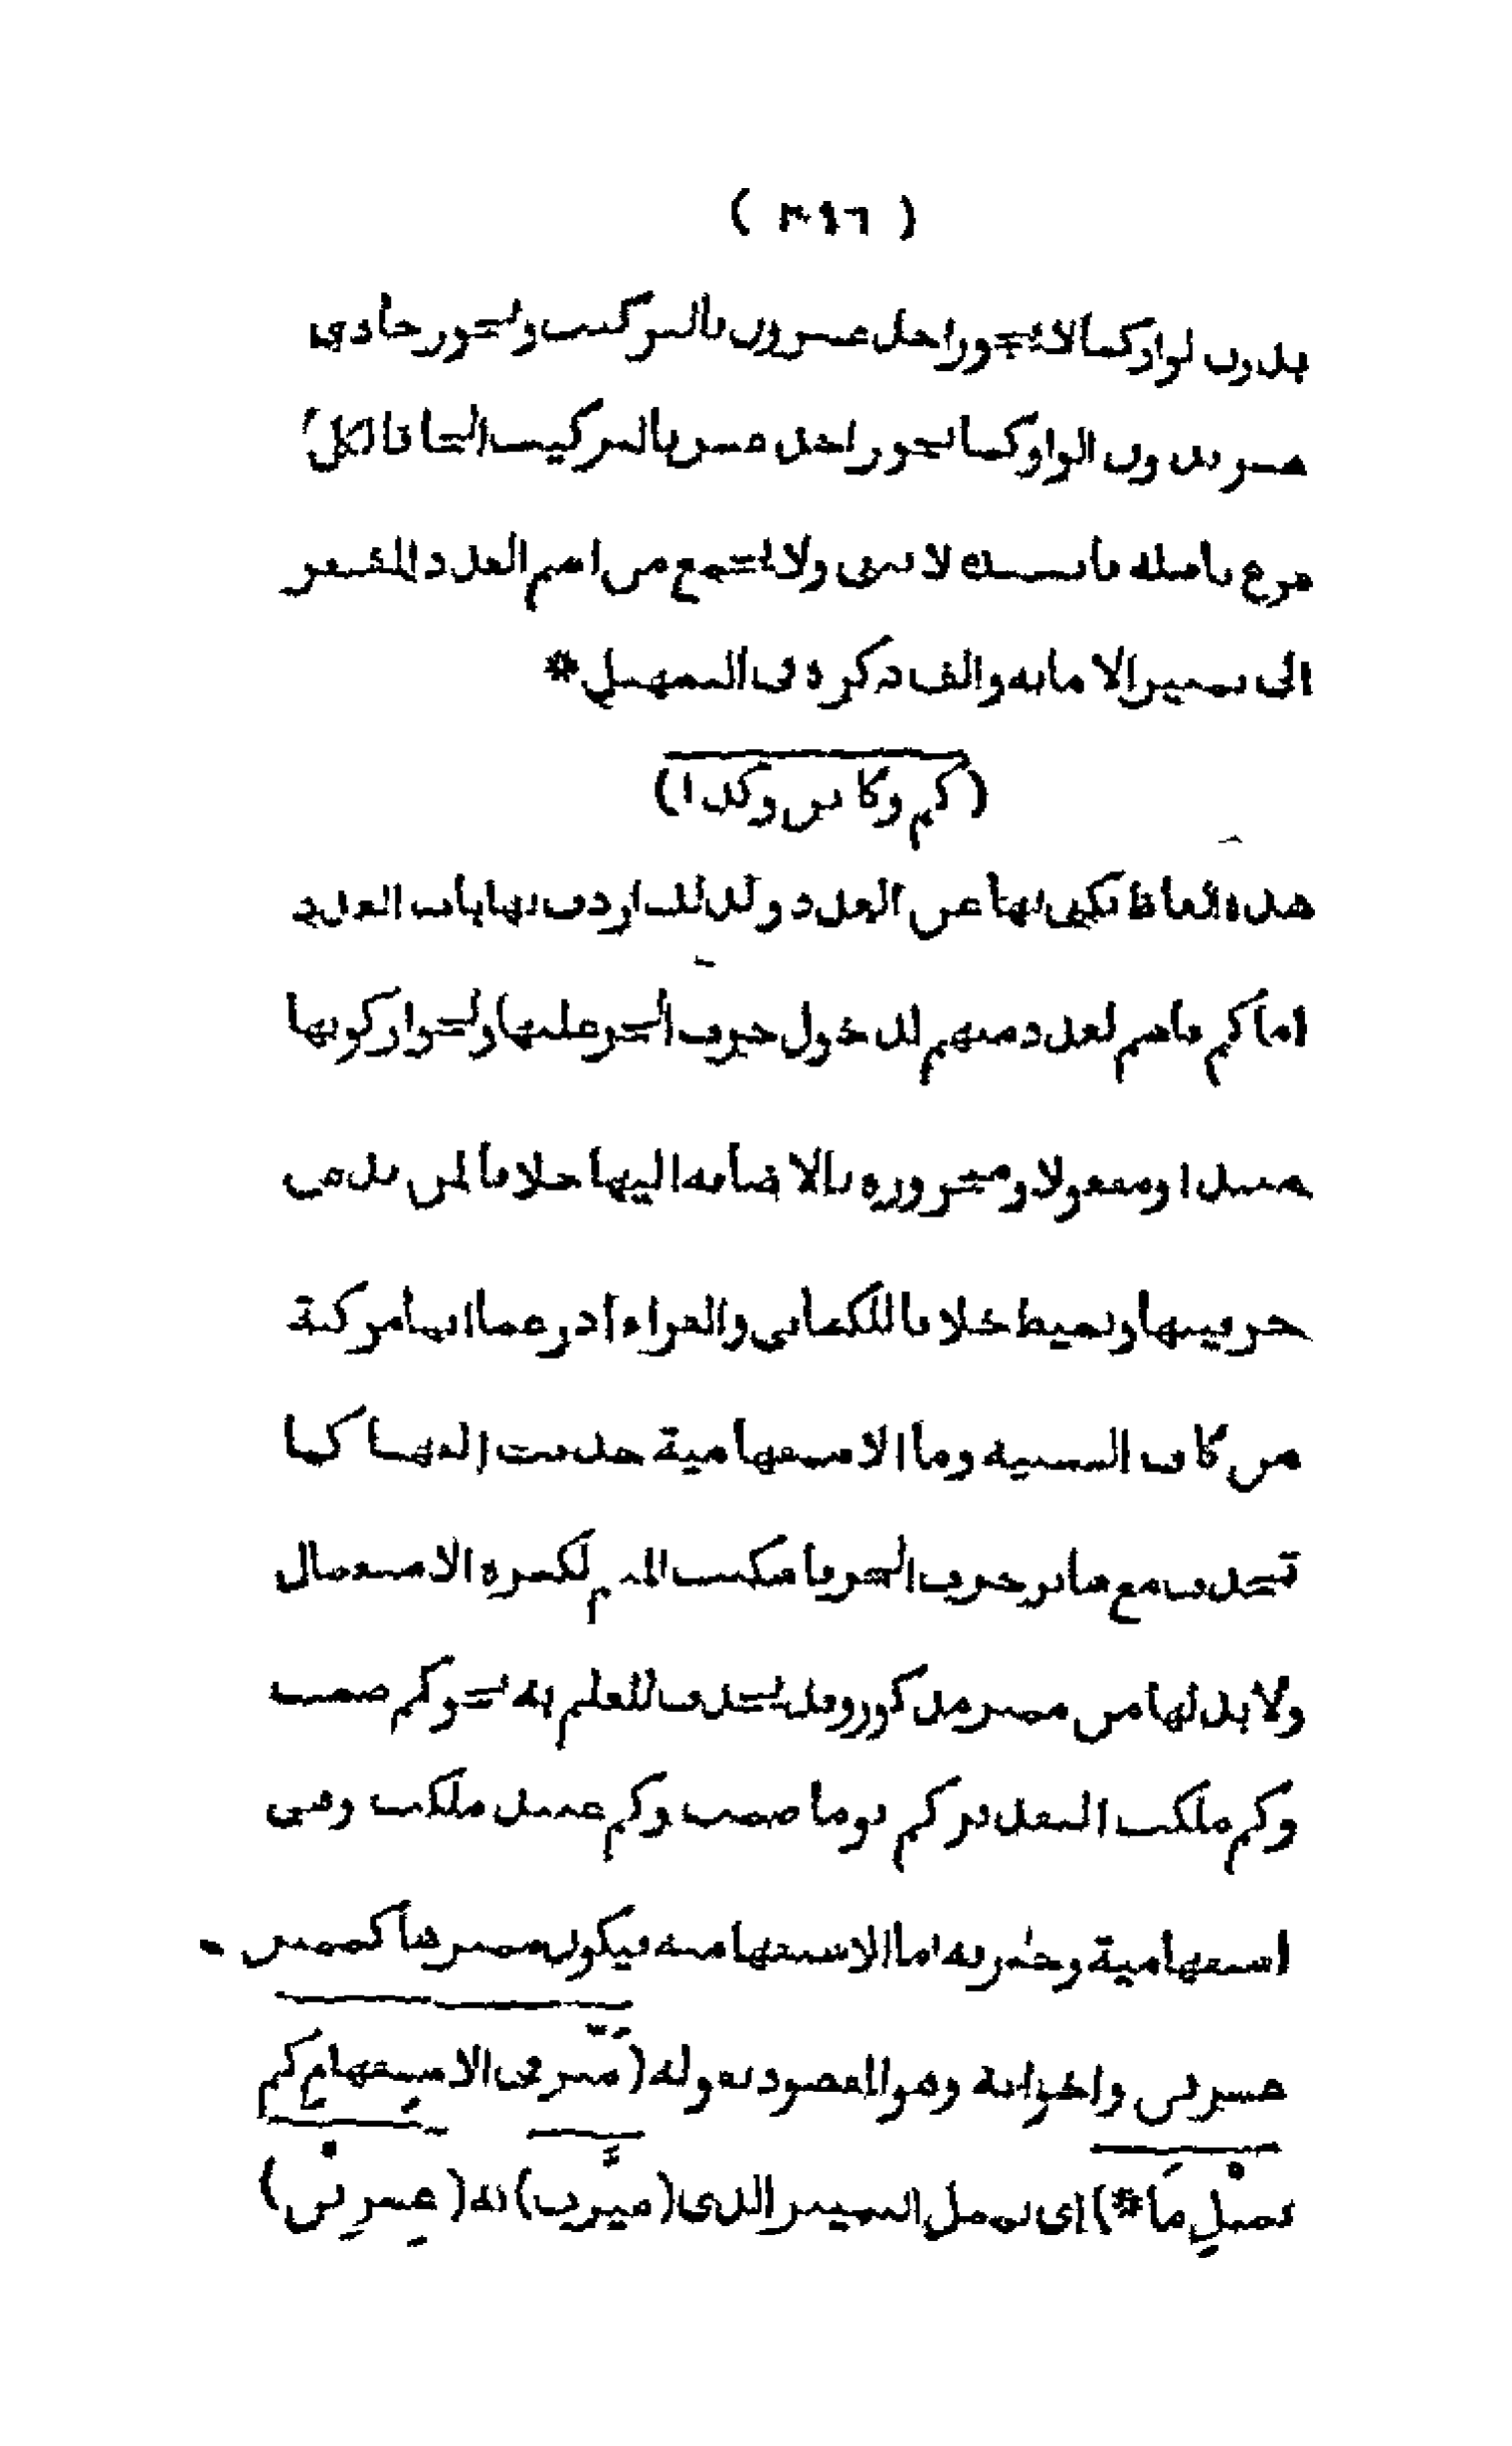 ( ٣٩٦ )
بدون لواو كما لا يجوز احد عشرون بالتركيب ويجوز حادي
عشر بدون الواو كما يجوز احد عشر بالتركيب الحاقا لكل
فرع باصله ولا يجمع من اسم العدد المفتقر
الى تمييز الا مايه والف ذكره في التسهيل *
(كم وكاين وكذا)
هذه الفاظ يكنى بها عن العدد ولذلك اردف بها باب العدد
اما كم فاسم لعدد مبهم لدخول حرف الجر عليها ولجواز كونها
مبتدا ومفعولا ومجروره بالاضافه اليها خلافا لمن يدعي
حرفيتها وبسيط خلافا للكسايي والفراء اذ زعما انها مركبة
من كاف التشبيه وما الاستفهامية حذفت الفها كما
تحذف مع ساير حروف الجر فاسكنت الميم لكثره الاستعمال
ولا بد لها من مميز مذكور وقد يحذف للعلم به نحو كم صمت
وكم ملكت التقدير كم يوما صمت وكم عبد ملكت وهي
استفهامية وخبريه اما الاستفهاميه فيكون مميزها كمميز
عشرين واخواته وهو المقصود بقوله (ميّز في الاستفهامِ كم
بمثلِ مَا *) اي بمثل التمييز الذي (ميّزت) به (عِشرِين)